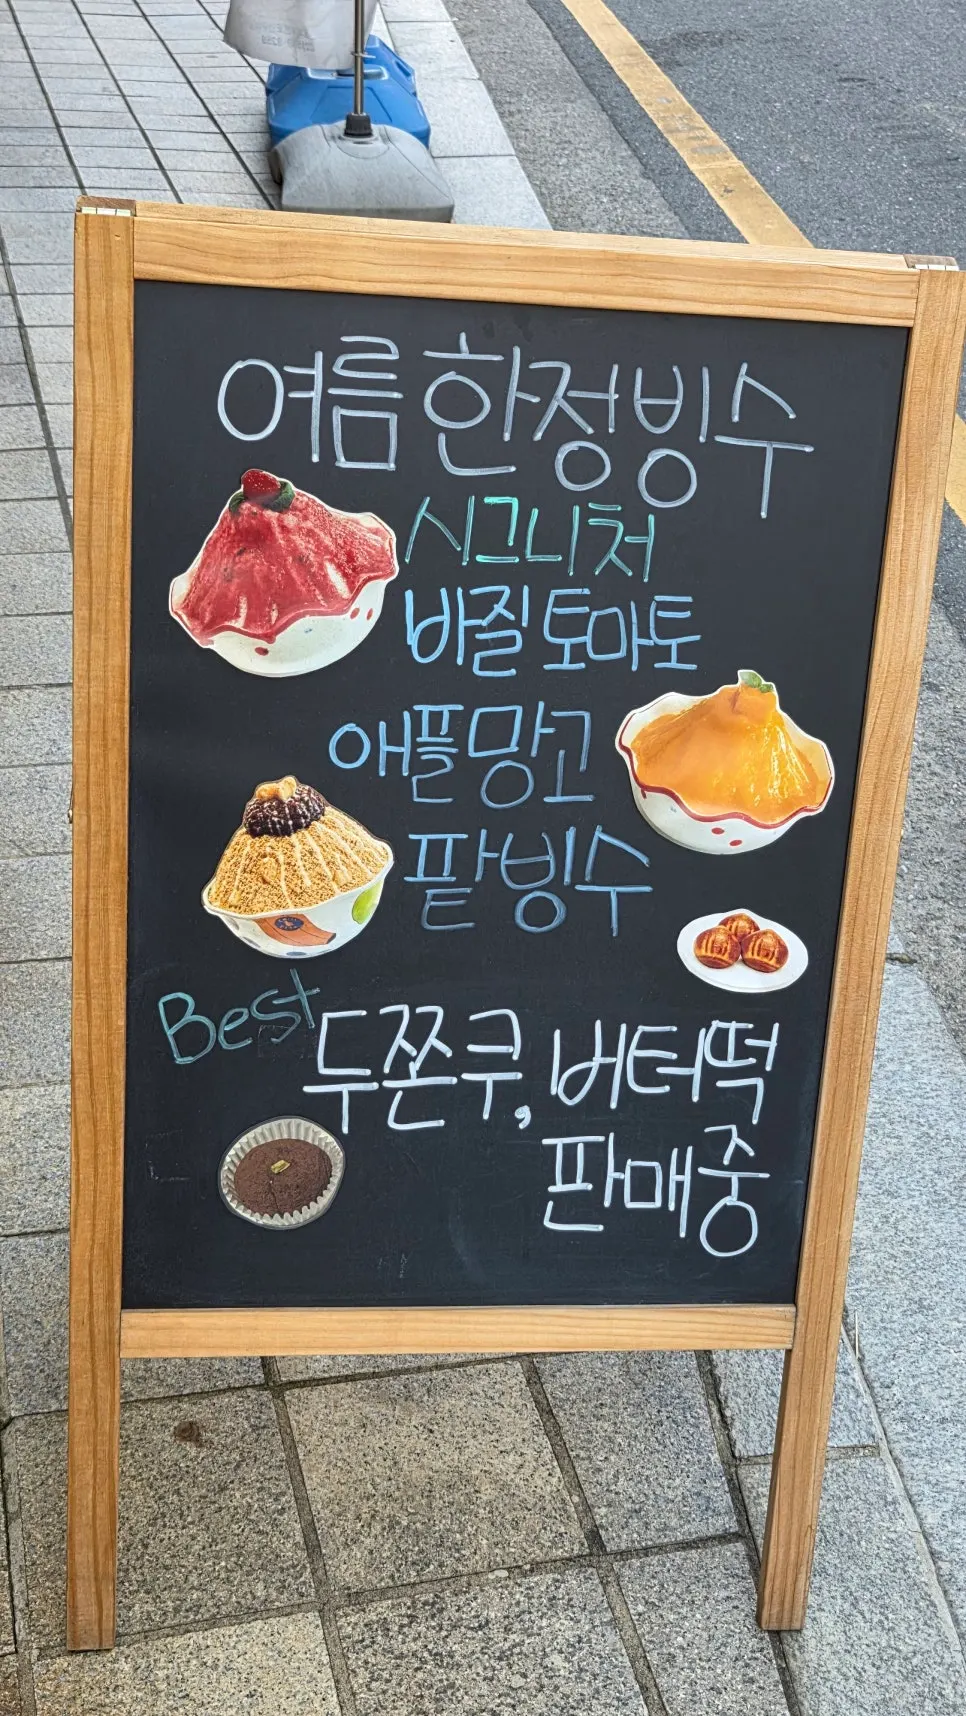 여름한정빙수
시그니처
바질토마토
애플망고
팥빙수
Best
두쫀쿠, 버터떡
판매중